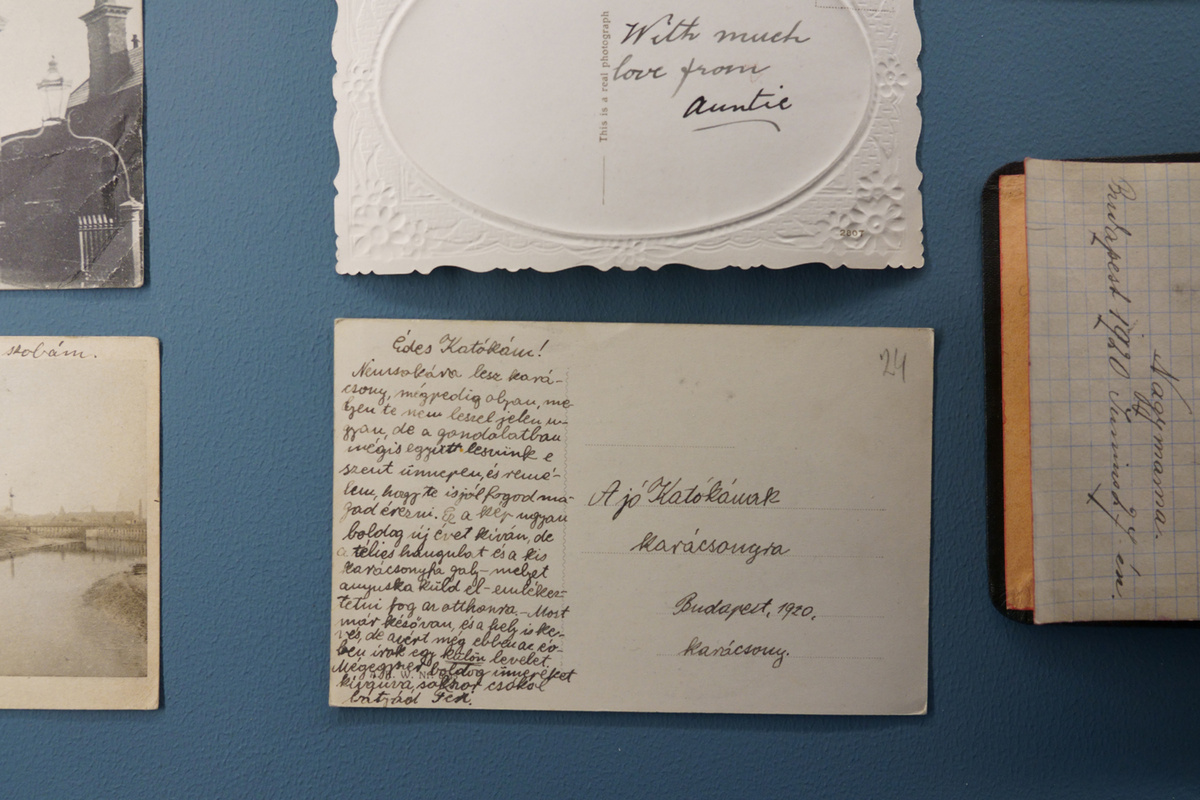 With much
love from
auntie
This is a real photograph
2807
szobám.
Édes Katókám!
Nemsokára lesz kará-
csony, mégpedig olyan, me-
lyen te nem leszel jelen u-
gyan, de a gondolatban
mégis együtt leszünk e
szent ünnepen, és remé-
lem, hogy te is jól fogod ma-
gad érezni. Ez a kép ugyan
boldog új évet kíván, de
a télies hangulat és a kis
karácsonyfa galy - melyet
anyuska küld el - emlékez-
tetni fog az otthonra. - Most
már késő van, és a hely is ke-
vés, de azért még ebben az év-
ben írok egy külön levelet.
Mégegyszer boldog ünnepeket
kívánva, sokszor csókol
bátyád
24
A jó Katókának
karácsonyra
Budapest, 1920.
karácsony.
Nagymama.
Budapest 1920 én.